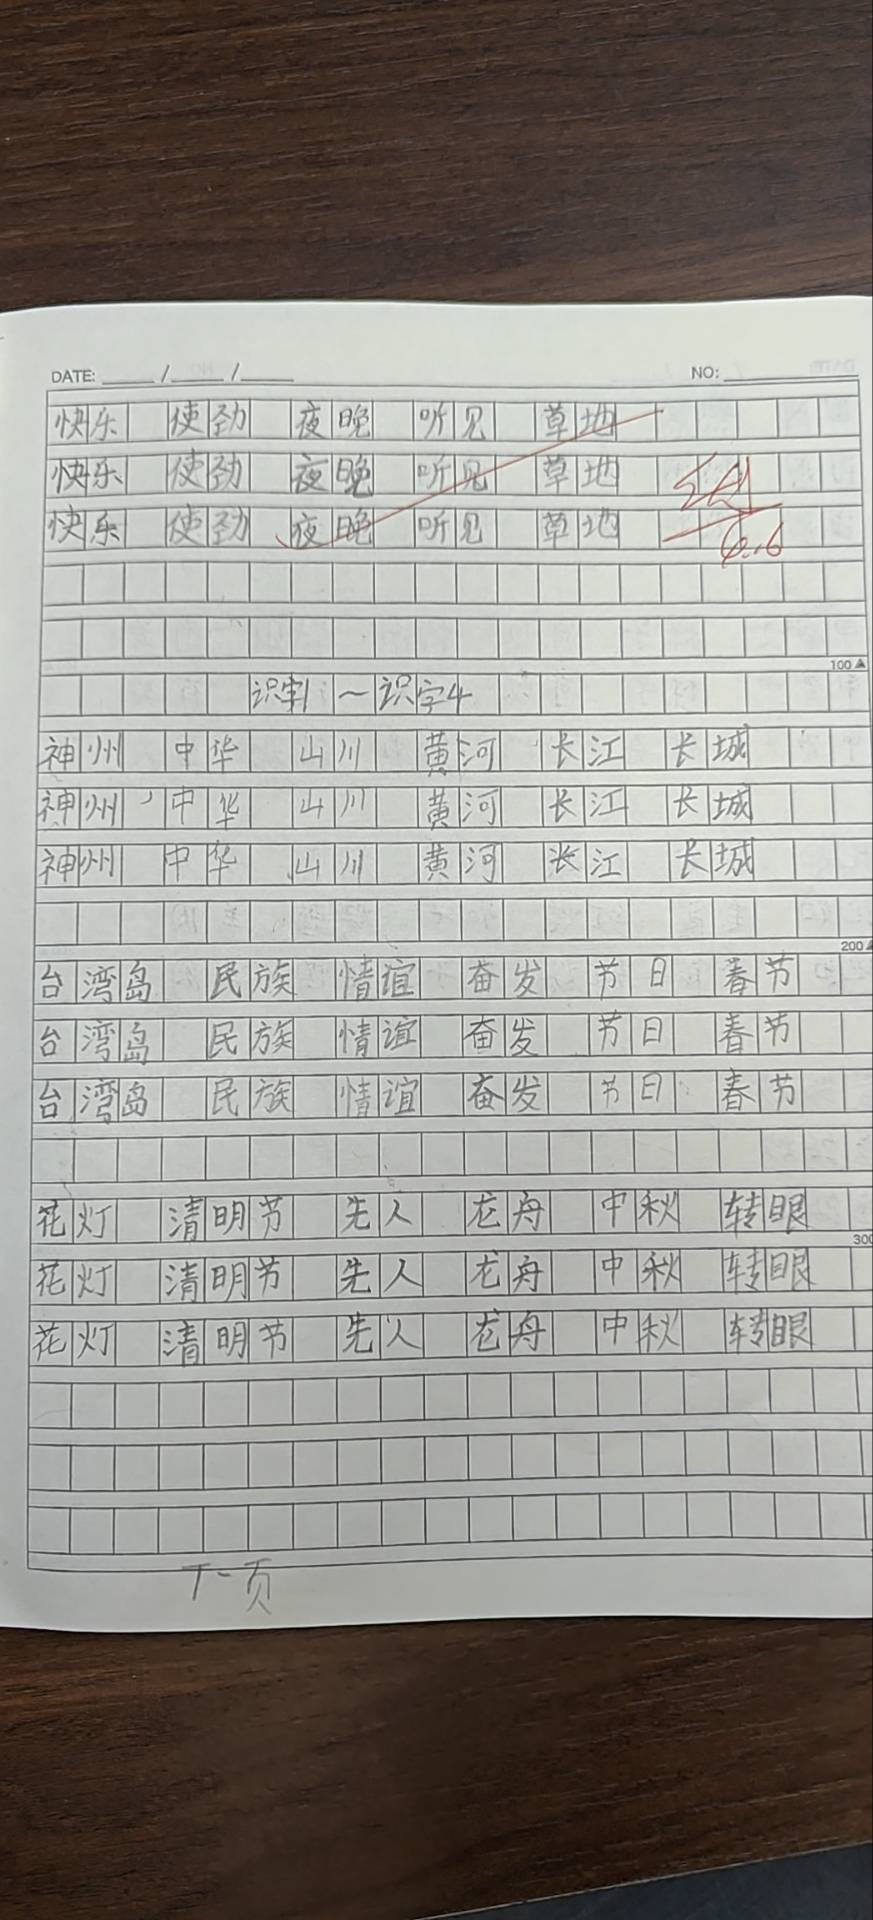 DATE: ____ / ____ / ____ NO: ____
快乐 使劲 夜晚 听见 草地
快乐 使劲 夜晚 听见 草地
快乐 使劲 夜晚 听见 草地
6.6
100
识字1～识字4
神州 中华 山川 黄河 长江 长城
神州 中华 山川 黄河 长江 长城
神州 中华 山川 黄河 长江 长城
200
台湾岛 民族 情谊 奋发 节日 春节
台湾岛 民族 情谊 奋发 节日 春节
台湾岛 民族 情谊 奋发 节日 春节
花灯 清明节 先人 龙舟 中秋 转眼
300
花灯 清明节 先人 龙舟 中秋 转眼
花灯 清明节 先人 龙舟 中秋 转眼
下一页